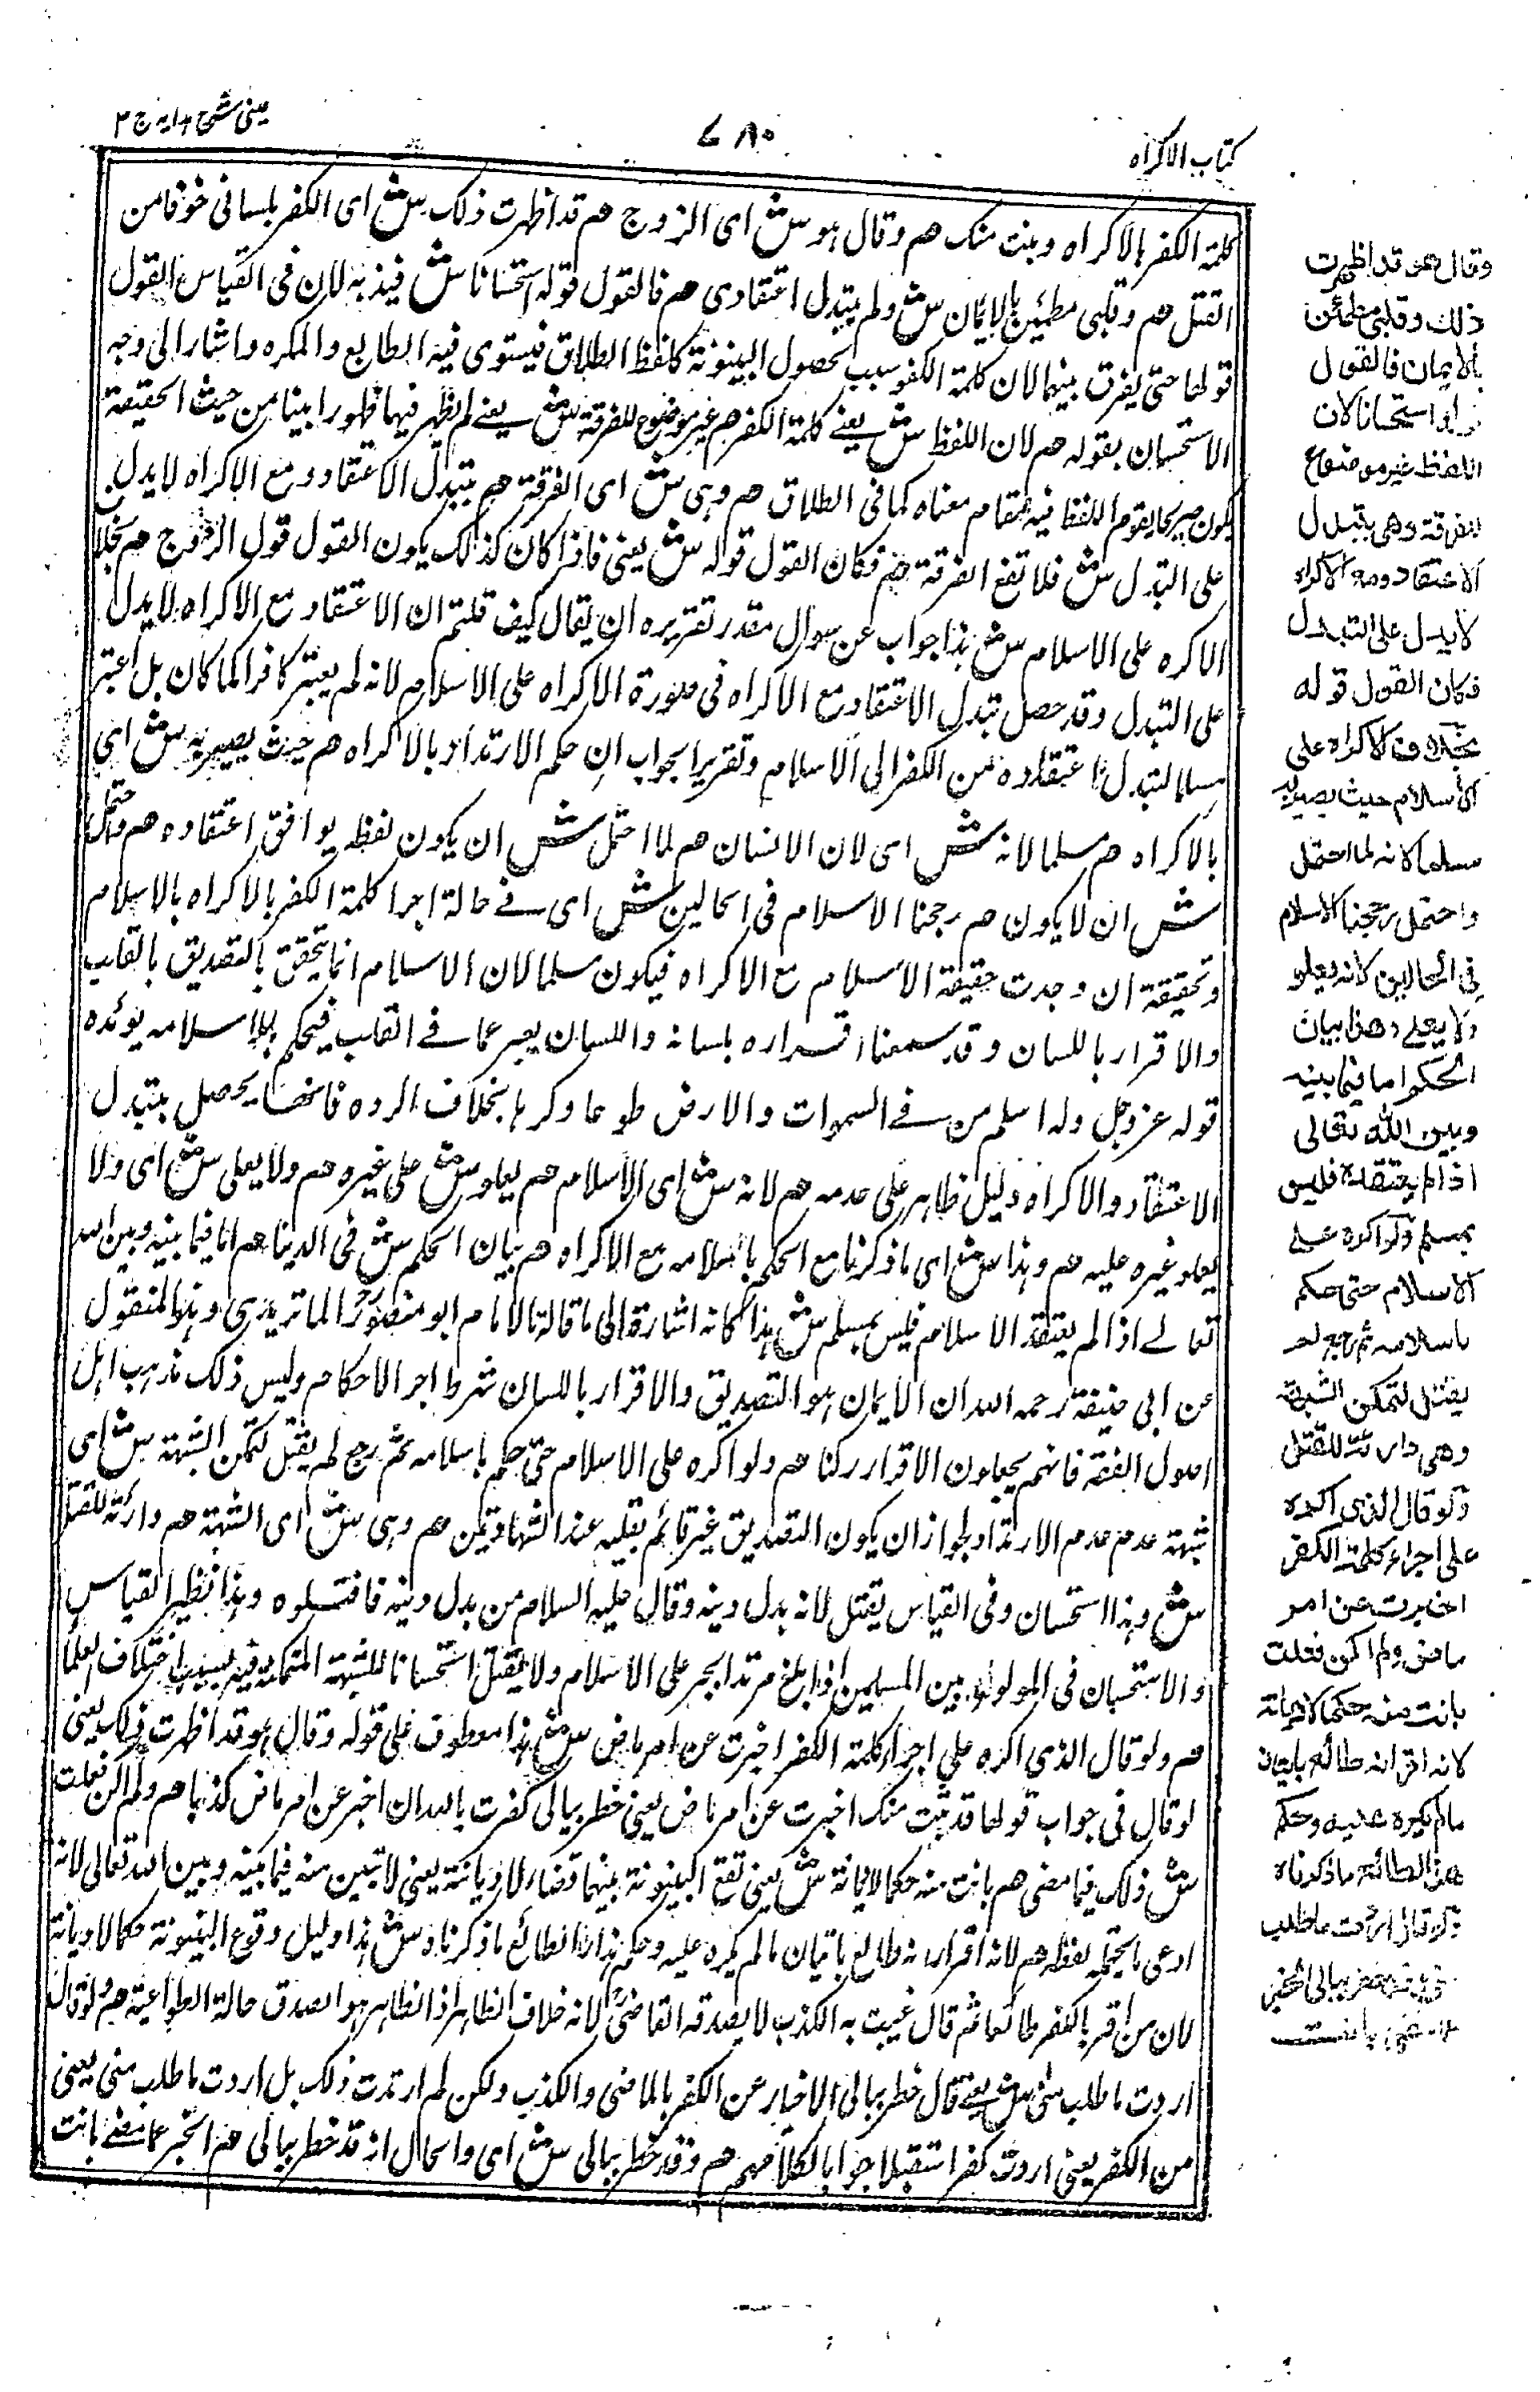 كتاب الاكراه
٧٨٠
عينى شرح هدايه ج ٣
كلمة الكفر بالاكراه وبنت منك هم وقال هو ش اى الزوج هم قد اظهرت ذلك ش اى الكفر بلسانى خوفا من
القتل هم وقلبى مطمئن بالايمان ش ولم يتبدل اعتقادى هم فالقول قوله استحسانا ش قيد به لان فى القياس القول
قولها حتى يفرق بينهما لان كلمة الكفر سبب لحصول البينونة كلفظ الطلاق فيستوى فيه الطايع والمكره واشار الى وجه
الاستحسان بقوله هم لان اللفظ ش يعنے كلمة الكفر هم غير موضوع للفرقة ش يعنے لم يظهر فيها ظهورا بينا من حيث الحقيقة
يكون صريحا يقوم اللفظ فيه مقام معناه كما فى الطلاق هم وهى ش اى الفرقة هم بتبدل الاعتقاد ومع الاكراه لا يدل
على التبدل ش فلا تقع الفرقة هم فكان القول قوله ش يعنى فاذا كان كذلك يكون القول قول الزوج هم بخلاف
الاكره على الاسلام ش هذا جواب عن سوال مقدر تقريره ان يقال كيف قلتم ان الاعتقاد مع الاكراه لا يدل
على التبدل وقد حصل تبدل الاعتقاد مع الاكراه فى صورة الاكراه على الاسلام لانه لم يعتبر كافرا كما كان بل اعتبر
مسلما لتبدل اعتقاده من الكفر الى الاسلام وتقرير الجواب ان حكم الارتداد بالاكراه هم حيث يصير به ش اى
بالاكراه هم مسلما لانه ش اى لان الانسان هم لما احتمل ش ان يكون لفظه يوافق اعتقاده هم واحتمل
ش ان لا يكون هم رجحنا الاسلام فى الحالين ش اى فے حالة اجرا كلمة الكفر بالاكراه بالاسلام
وتحقيقه ان وجدت حقيقة الاسلام مع الاكراه فيكون مسلما لان الاسلام انما يتحقق بالتصديق بالقلب
والاقرار باللسان وقد سمعنا اقراره بلسانه واللسان يعبر عما فے القلب فيحكم باسلامه يؤئده
قوله عز وجل وله اسلم من فے السموات والارض طوعا وكرها بخلاف الرده فانها يحصل بتبدل
الاعتقاد والاكراه دليل ظاهر على عدمه هم لانه ش اى الاسلام هم يعلو ش على غيره هم ولا يعلى ش اى ولا
يعلو غيره عليه هم وهذا ش اى ما ذكرنا مع الحكم باسلامه مع الاكراه هم بيان الحكم ش فى الدنيا هم اما فيما بينه وبين الله
تعالے اذا لم يعتقد الاسلام فليس بمسلم ش هذا كانه اشارة الى ما قاله الامام ابو منصور الماتريدى وهذا المنقول
عن ابى حنيفة رحمه الله ان الايمان هو التصديق والاقرار باللسان شرط اجرا الاحكام وليس ذلك مذهب اهل
اصول الفقه فانهم يجعلون الاقرار ركنا هم ولو اكره على الاسلام حتى حكم باسلامه ثم رجع لم يقتل لتمكن الشبهة ش اى
شبهة عدم عدم الارتداد لجواز ان يكون التصديق غير قائم بقلبه عند الشهادتين هم وهى ش اى الشبهة هم دارئة للقتل
ش وهذا استحسان وفى القياس يقتل لانه بدل دينه وقال عليه السلام من بدل دينه فاقتلوه وهذا نظير القياس
والاستحسان فى المولود بين المسلمين اذا بلغ مرتدا يجبر على الاسلام ولا يقتل استحسانا للشبهة المتمكنة فيه بسبب اختلاف العلماء
هم ولو قال الذى اكره على اجراء كلمة الكفر اخبرت عن امر ماض ش هذا معطوف على قوله وقال هو قد اظهرت ذلك يعنى
لو قال فى جواب قولها قد بنت منك اخبرت عن امر ماض يعنى خطر ببالى كفرت بالله ان اخبر عن امر ماض كذبا هم ولم اكن فعلت
ش ذلك فيما مضى هم بانت منه حكما لا ديانة ش يعنى تقع البينونة بينهما قضاء لا ديانة يعنى لا تبين منه فيما بينه وبين الله تعالى لانه
ادعى ما يحتمله لفظه هم لانه اقرار انه طايع باتيان ما لم يكره عليه وحكم هذا الطائع ما ذكرناه ش هذا دليل وقوع البينونة حكما لا ديانة
لان من اقر بالكفر طائعا ثم قال عنيت به الكذب لا يصدقه القاضى لانه خلاف الظاهر اذ الظاهر هو الصدق حالة الطواعية هم ولو قال
اردت ما طلب منى ش يعنے قال خطر ببالى الاخبار عن الكفر بالماضى والكذب ولكن لم ارتدت ذلك بل اردت ما طلب منى يعنى
من الكفر يعنى اردت كفرا مستقبلا جوابا لكلامهم هم وقد خطر ببالى ش اى والحال انه قد خطر ببالى هم الخبر عما مضے بانت
وقال هو قد اظهرت
ذلك وقلبى مطمئن
بالايمان فالقول
قوله استحسانا لان
اللفظ غير موضوع
للفرقة وهى بتبدل
الاعتقاد ومع الاكراه
لا يدل على التبدل
فكان القول قوله
بخلاف الاكراه على
الاسلام حيث يصير به
مسلما لانه لما احتمل
واحتمل رجحنا الاسلام
فى الحالين لانه يعلو
ولا يعلى وهذا بيان
الحكم اما فيما بينه
وبين الله تعالى
اذا لم يعتقده فليس
بمسلم ولو اكره على
الاسلام حتى حكم
باسلامه ثم رجع لم
يقتل لتمكن الشبهة
وهى دارئة للقتل
ولو قال الذى اكره
على اجراء كلمة الكفر
اخبرت عن امر
ماض ولم اكن فعلت
بانت منه حكما لا ديانة
لانه اقر انه طائع باتيان
ما لم يكره عليه وحكم
هذا الطائع ما ذكرناه
ولو قال اردت ما طلب
منى وقد خطر ببالى الخبر
عما مضى بانت